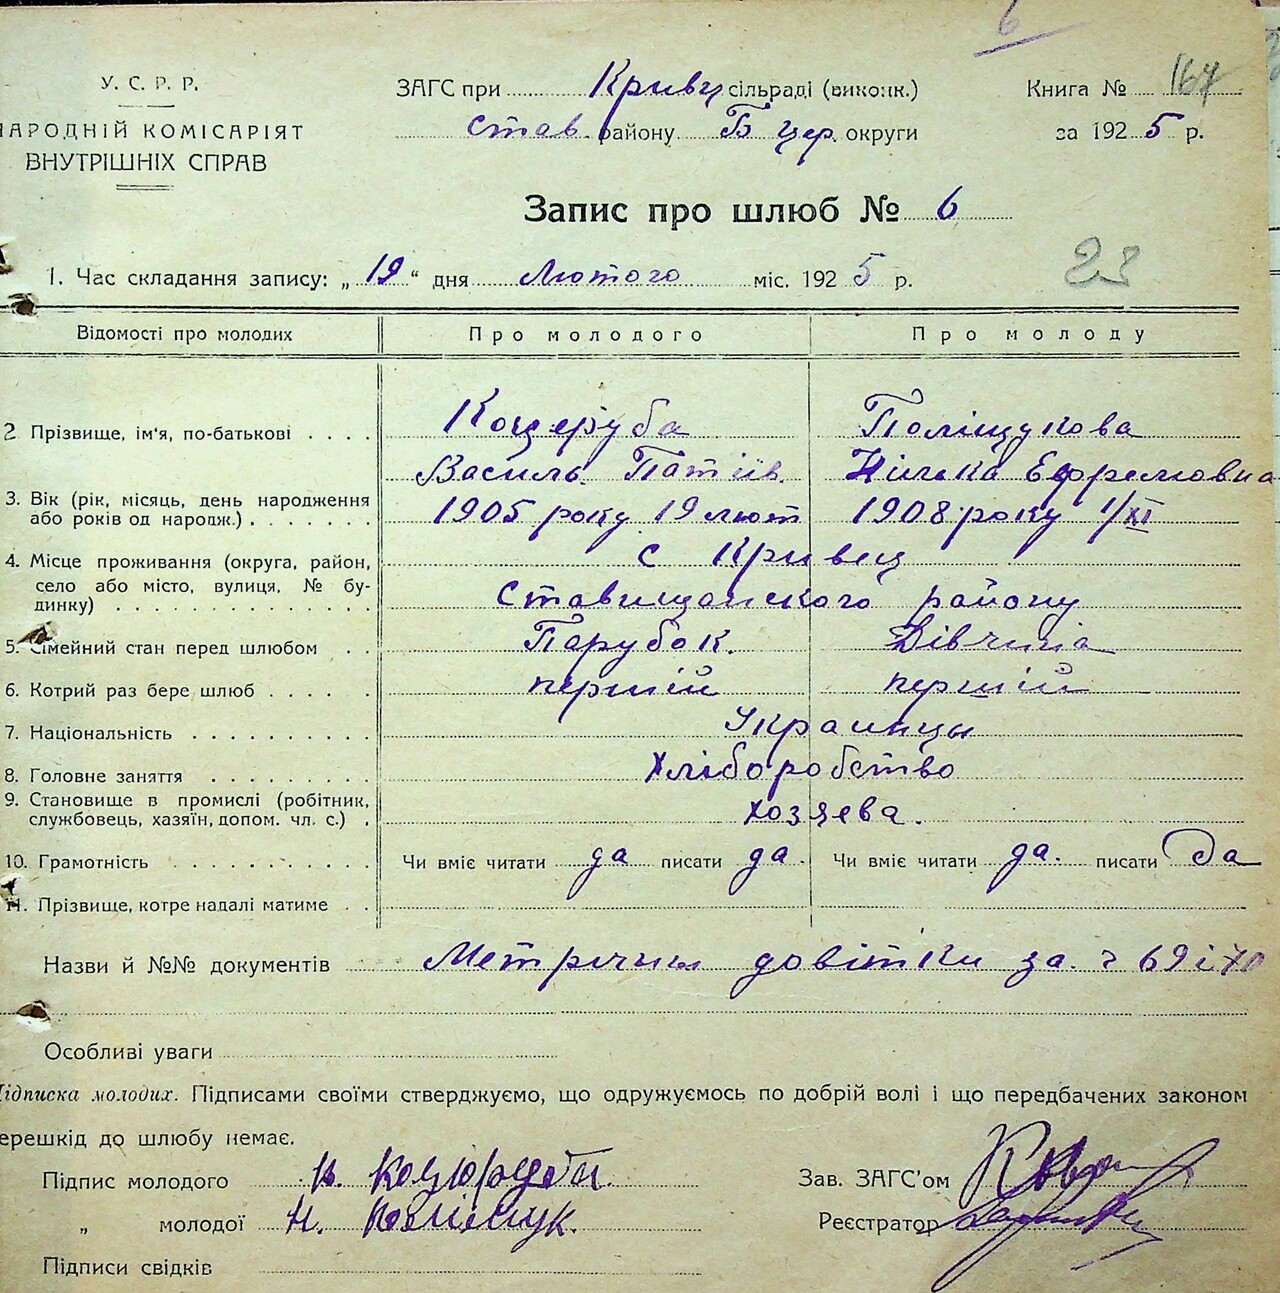 6
У. С. Р. Р.
НАРОДНІЙ КОМІСАРІЯТ
ВНУТРІШНІХ СПРАВ
ЗАГС при Кривц сільраді (виконк.)
Став. району Б цер. округи
Книга № 167
за 1925 р.
Запис про шлюб № 6
1. Час складання запису: „19“ дня Лютого міс. 1925 р.
23
Відомості про молодих Про молодого Про молоду
2 Прізвище, ім'я, по-батькові . . . . Коцеруба Поліщукова
Василь Ефремовна
3. Вік (рік, місяць, день народження 1905 року 19 лют 1908 року 1/XI
або років од народж.) . . . . . .
4. Місце проживання (округа, район, с Кривец
село або місто, вулиця, № бу- Ставищанского району
динку) . . . . . . . . . . . . . .
5. Сімейний стан перед шлюбом . . Парубок. Дівчина
6. Котрий раз бере шлюб . . . . . перший перший
7. Національність . . . . . . . . . . Украинцы
8. Головне заняття . . . . . . . . . Хліборобство
9. Становище в промислі (робітник, хозяева.
службовець, хазяїн, допом. чл. с.) .
10. Грамотність . . . . . . . . . . Чи вміє читати да писати да. Чи вміє читати да. писати да
11. Прізвище, котре надалі матиме . .
Назви й №№ документів Метрични довітки за. 69 і 70
Особливі уваги
Підписка молодих. Підписами своїми стверджуємо, що одружуємось по добрій волі і що передбачених законом
перешкід до шлюбу немає.
Підпис молодого
„ молодої Н. Поліщук.
Підписи свідків
Зав. ЗАГС'ом
Реєстратор